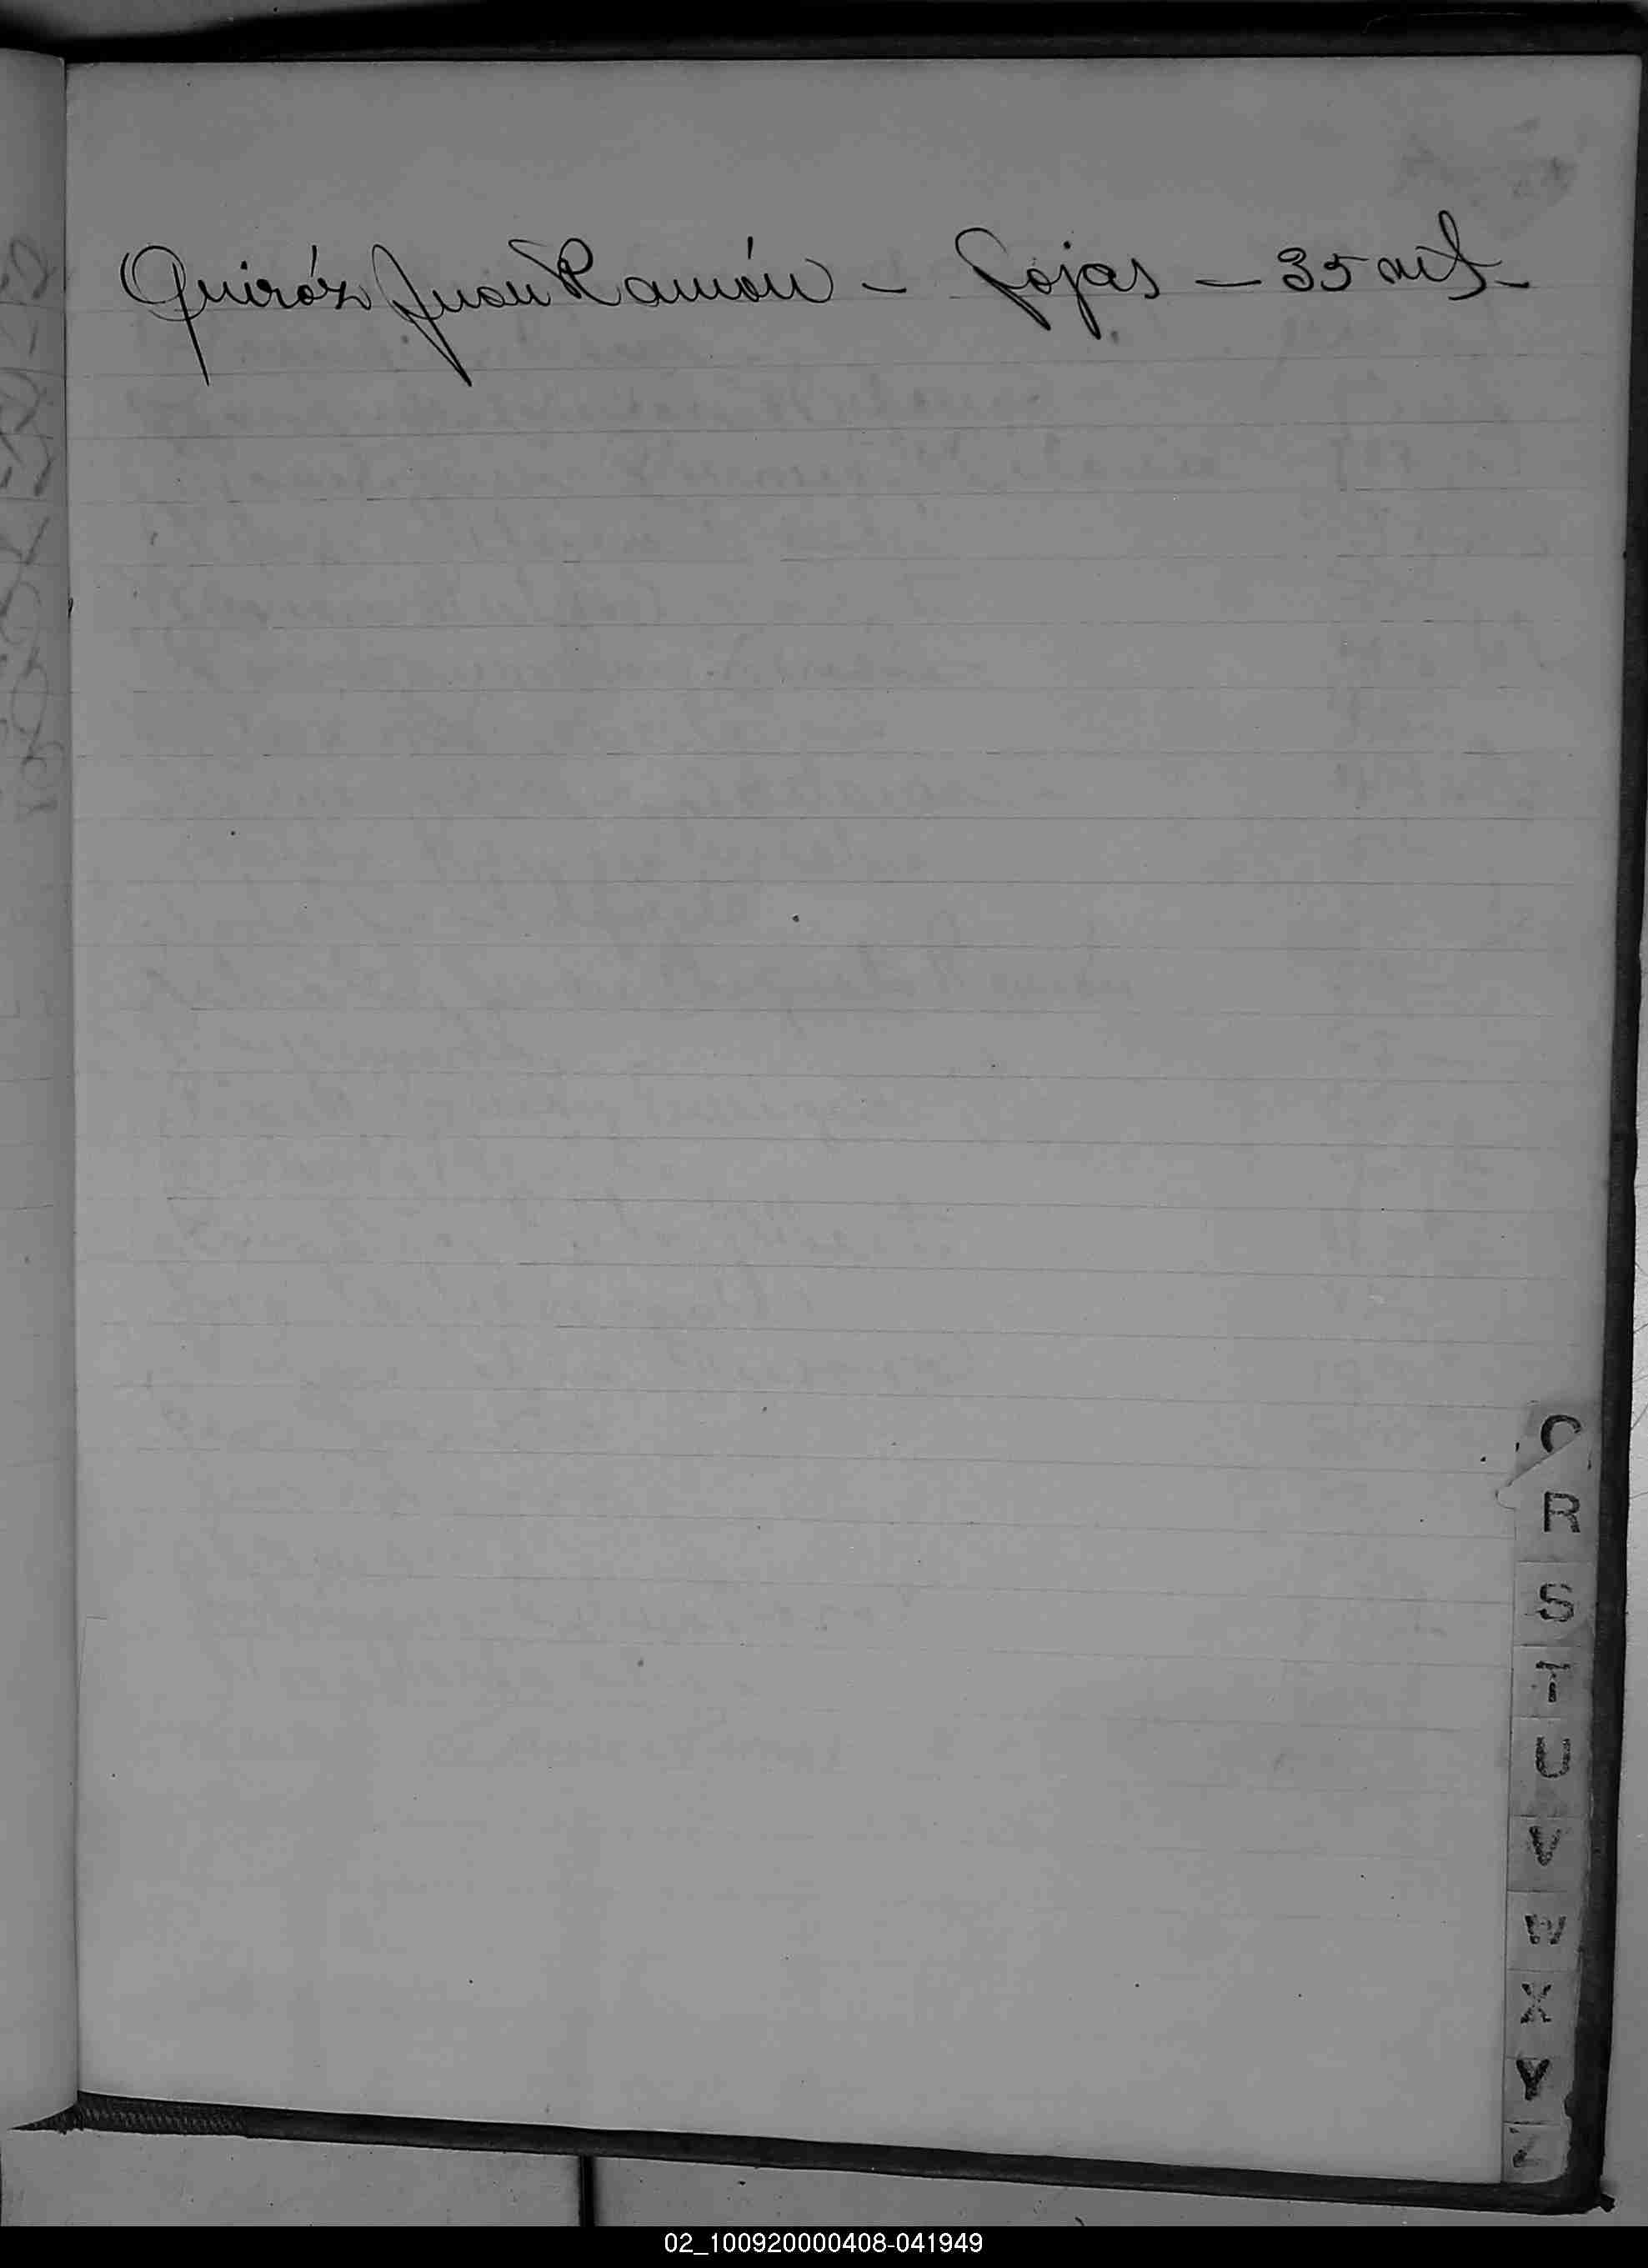 Quiróz Juan Ramón - Fojas - 35 
R
S
T
U
V
W
X
Y
Z
02_100920000408-041949